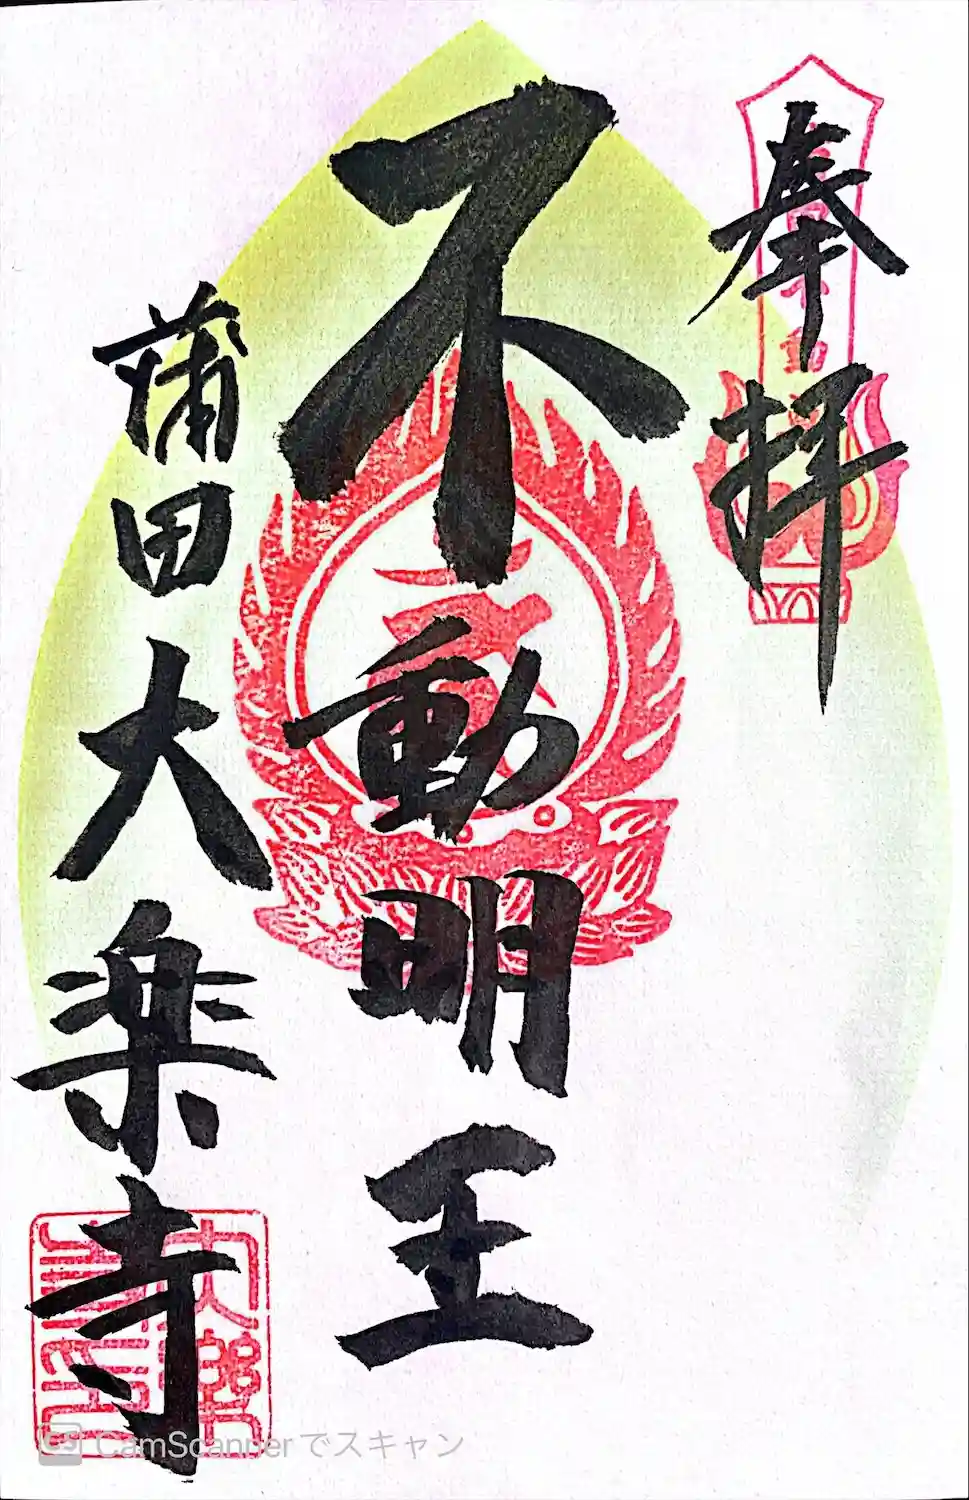 奉拝
不動明王
蒲田大楽寺
CamScannerでスキャン